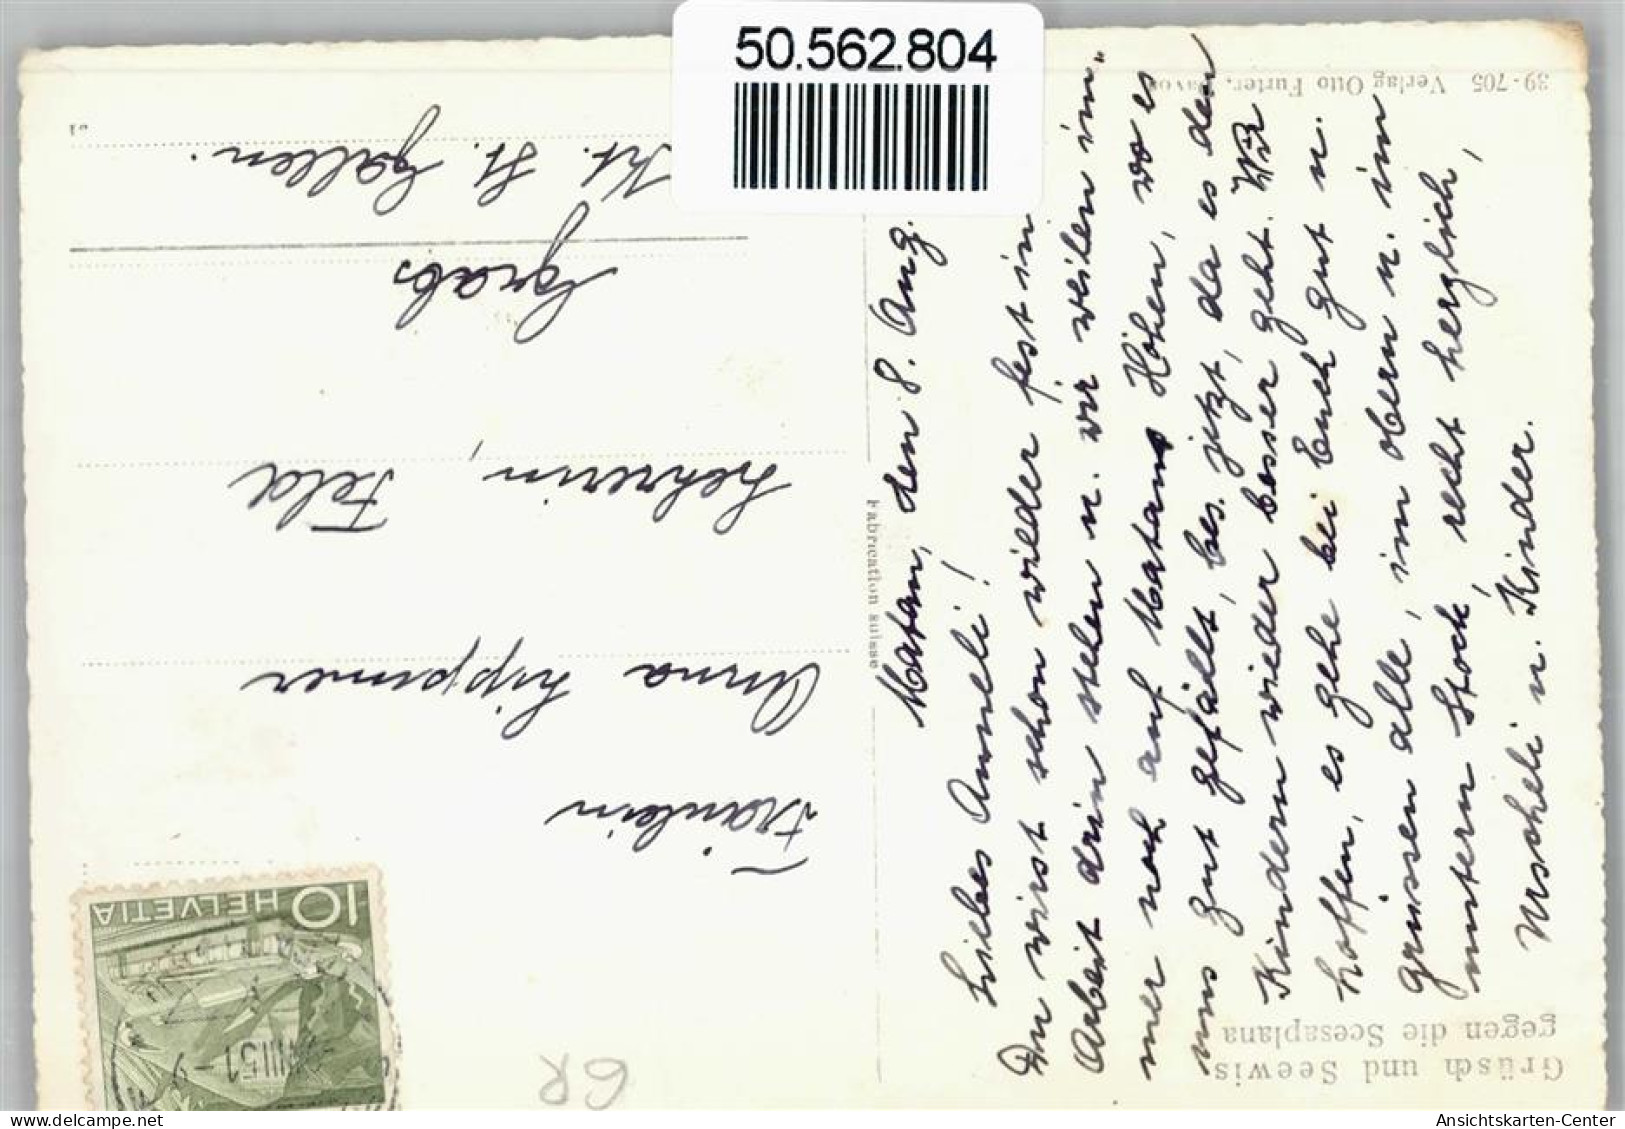 50.562.804
Grüsch und Seewis
gegen die Scesaplana
39-705 Verlag Otto Furter, Davos
Fabrication suisse
HELVETIA
10
VIII.51-9
GR
Fräulein
Anna Lippuner
Lehrerin, Feld
Grabs
Kt. St. Gallen.
den 8. Aug.
Liebes Anneli!
Du wirst schon wieder fest in
Arbeit drin stehen u. wir weilen im-
mer noch auf Matans Höhen, wo es
uns gut gefällt, bes. jetzt, da es den
Kindern wieder besser geht. Wir
hoffen, es gehe bei Euch gut u.
grüssen alle, im obern u. im
untern Stock, recht herzlich,
Urscheli u. Kinder.
Ansichtskarten-Center